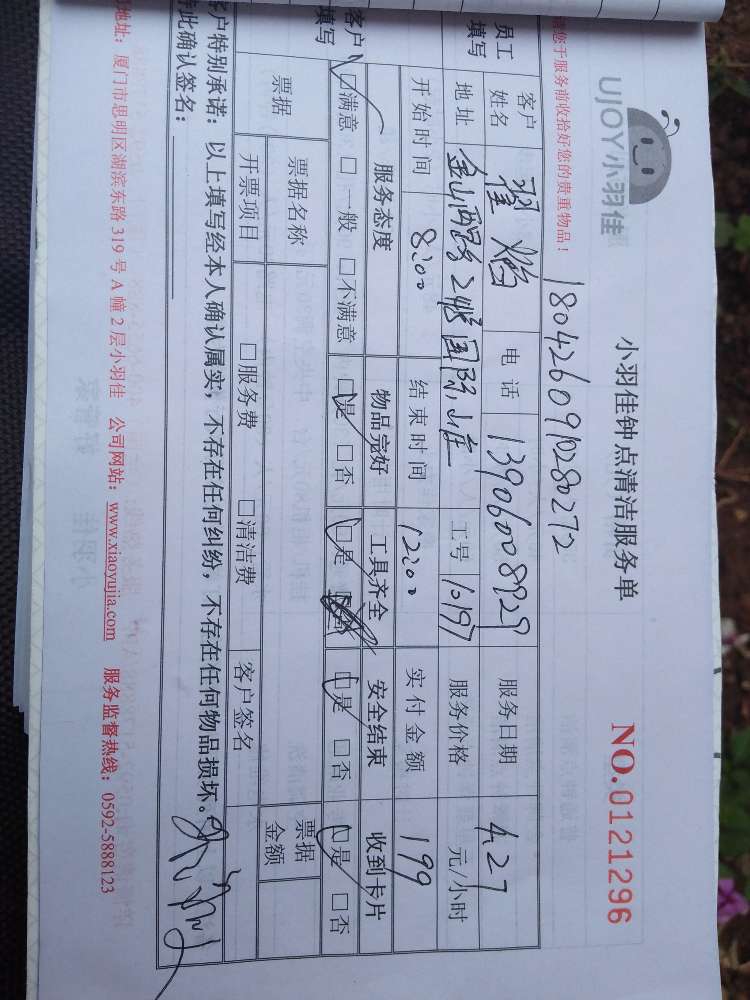 UJOY小羽佳
小羽佳钟点清洁服务单
NO.0121296
您于服务前收拾好您的贵重物品!
1804260910280272
员工填写
客户姓名 电话 13906008929 服务日期 4.27
地址 金山西路 国际 工号 10197 服务价格 元/小时
开始时间 8:00 结束时间 12:00 实付金额 199
客户填写
服务态度 物品完好 工具齐全 安全结束 收到卡片
☑满意 □一般 □不满意 ☑是 □否 ☑是 ☑是 □否 ☑是 □否
票据 票据名称 票据金额
开票项目 □服务费 □清洁费 客户签名
客户特别承诺:以上填写经本人确认属实,不存在任何纠纷,不存在任何物品损坏。
此确认签名:
地址:厦门市思明区湖滨东路 319 号 A 幢 2 层小羽佳 公司网站:www.xiaoyujia.com 服务监督热线:0592-5888123